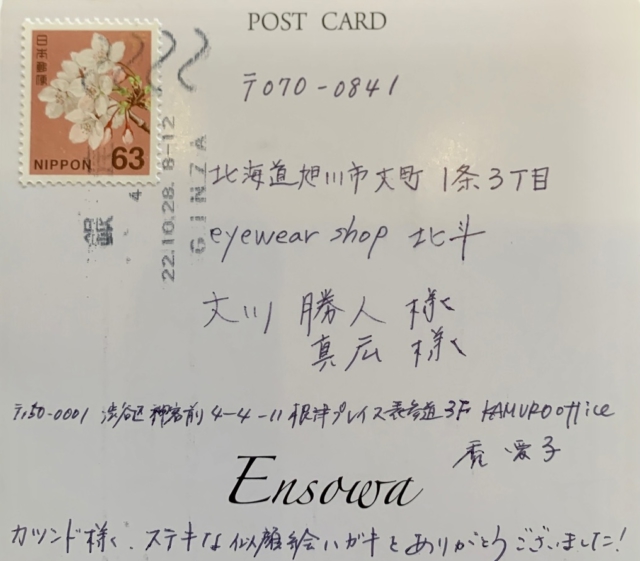 POST CARD
日本郵便
NIPPON 63
22.10.28. 8-12
GINZA
〒070-0841
北海道旭川市大町 1条3丁目
eyewear shop 北斗
勝人 様
真広 様
〒150-0001 渋谷区神宮前4-4-11 根津プレイス表参道3F KAMURO office
愛子
Ensowa
カツンド様、ステキな似顔絵ハガキとありがとうございました!